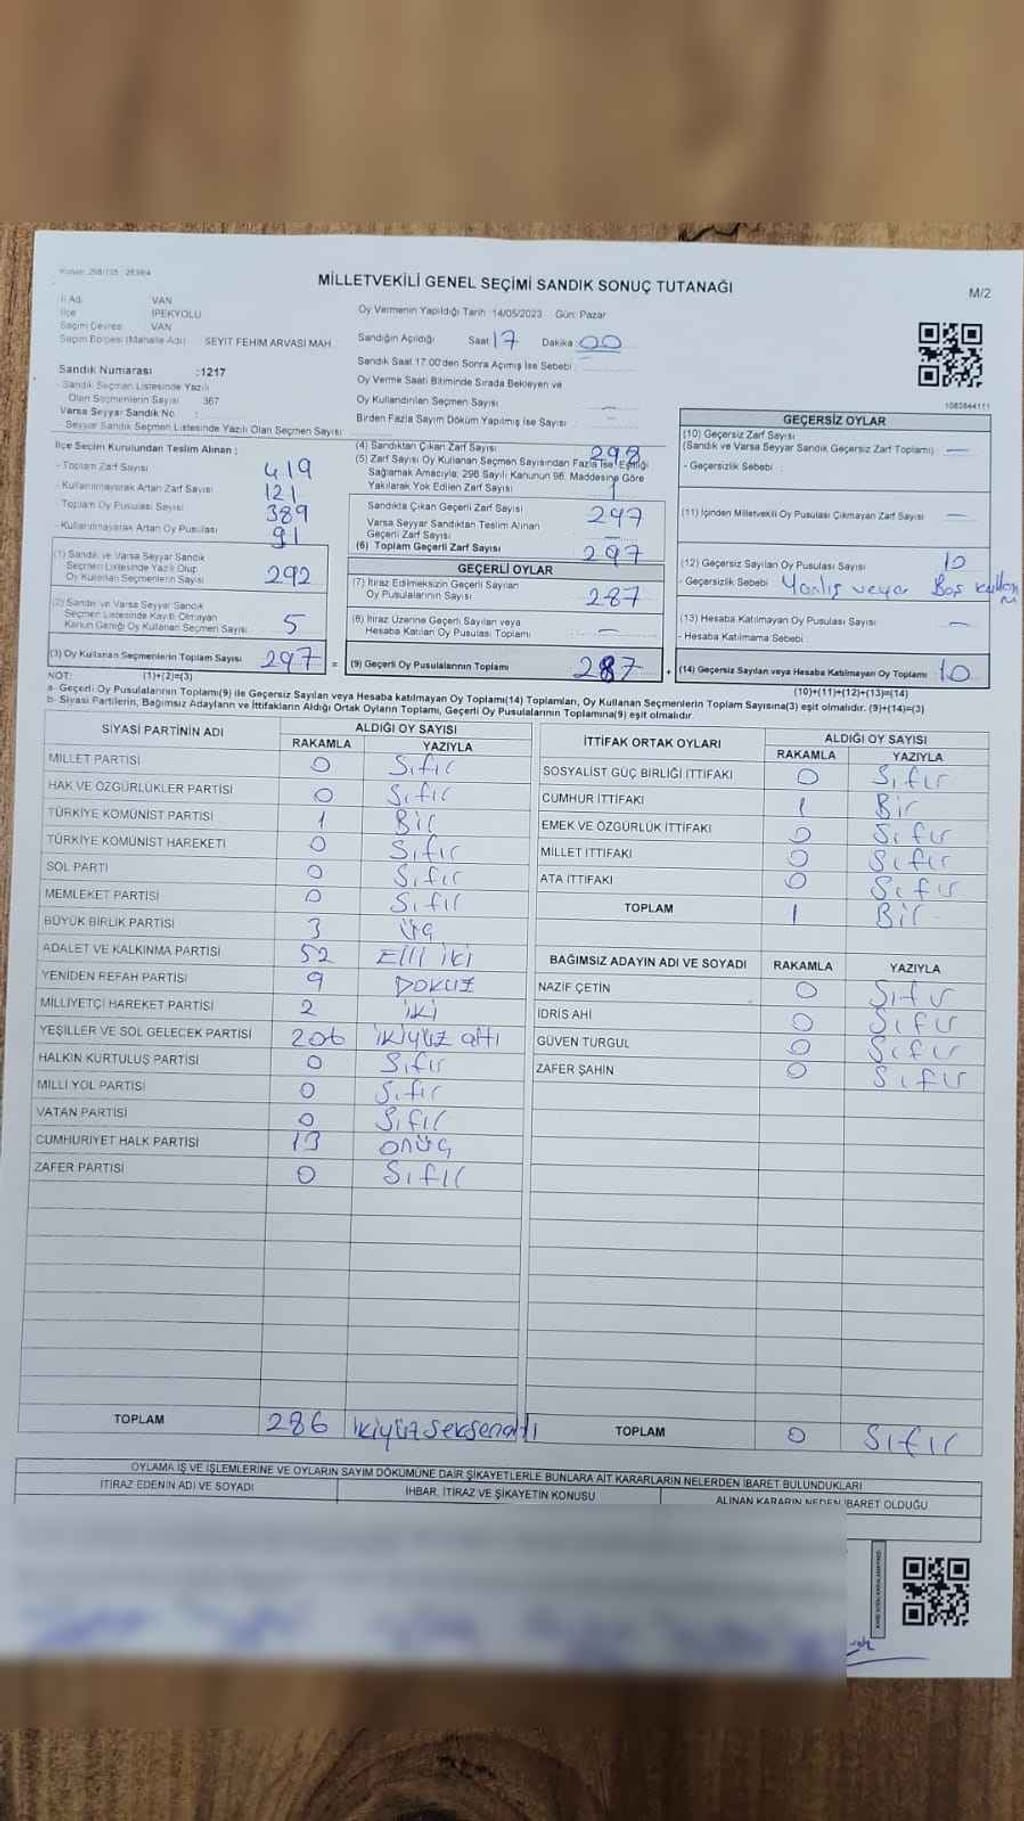 MİLLETVEKİLİ GENEL SEÇİMİ SANDIK SONUÇ TUTANAĞI
M/2
İl Adı VAN
İlçe İPEKYOLU
Seçim Çevresi VAN
Seçim Bölgesi (Mahalle Adı) SEYİT FEHİM ARVASİ MAH.
Oy Vermenin Yapıldığı Tarih 14/05/2023 Gün: Pazar
Sandığın Açıldığı Saat 17 Dakika 00
Sandık Saat 17.00'den Sonra Açımış İse Sebebi
Oy Verme Saati Bitiminde Sırada Bekleyen ve
Oy Kullandırılan Seçmen Sayısı —
Birden Fazla Sayım Döküm Yapılmış İse Sayısı —
Sandık Numarası :1217
- Sandık Seçmen Listesinde Yazılı
Olan Seçmenlerin Sayısı 367
Varsa Seyyar Sandık No :
- Seyyar Sandık Seçmen Listesinde Yazılı Olan Seçmen Sayısı
İlçe Seçim Kurulundan Teslim Alınan ;
- Toplam Zarf Sayısı 419
- Kullanılmayarak Artan Zarf Sayısı 121
- Toplam Oy Pusulası Sayısı 389
- Kullanılmayarak Artan Oy Pusulası 91
(1) Sandık ve Varsa Seyyar Sandık
Seçmen Listesinde Yazılı Olup
Oy Kullanan Seçmenlerin Sayısı 292
(2) Sandık ve Varsa Seyyar Sandık
Seçmen Listesinde Kayıtlı Olmayan
Kanun Gereği Oy Kullanan Seçmen Sayısı 5
(3) Oy Kullanan Seçmenlerin Toplam Sayısı 297 =
(1)+(2)=(3)
(4) Sandıktan Çıkan Zarf Sayısı 298
(5) Zarf Sayısı Oy Kullanan Seçmen Sayısından Fazla İse, Eşitliği
Sağlamak Amacıyla; 298 Sayılı Kanunun 98. Maddesine Göre
Yakılarak Yok Edilen Zarf Sayısı 1
Sandıkta Çıkan Geçerli Zarf Sayısı 297
Varsa Seyyar Sandıktan Teslim Alınan
Geçerli Zarf Sayısı —
(6) Toplam Geçerli Zarf Sayısı 297
GEÇERLİ OYLAR
(7) İtiraz Edilmeksizin Geçerli Sayılan
Oy Pusulalarının Sayısı 287
(8) İtiraz Üzerine Geçerli Sayılan veya
Hesaba Katılan Oy Pusulası Toplamı —
(9) Geçerli Oy Pusulalarının Toplamı 287 +
1083844111
GEÇERSİZ OYLAR
(10) Geçersiz Zarf Sayısı
(Sandık ve Varsa Seyyar Sandık Geçersiz Zarf Toplamı) —
- Geçersizlik Sebebi :
(11) İçinden Milletvekili Oy Pusulası Çıkmayan Zarf Sayısı —
(12) Geçersiz Sayılan Oy Pusulası Sayısı 10
- Geçersizlik Sebebi Yanlış veya Boş
(13) Hesaba Katılmayan Oy Pusulası Sayısı —
- Hesaba Katılmama Sebebi
(14) Geçersiz Sayılan veya Hesaba Katılmayan Oy Toplamı 10
(10)+(11)+(12)+(13)=(14)
NOT:
a- Geçerli Oy Pusulalarının Toplamı(9) ile Geçersiz Sayılan veya Hesaba katılmayan Oy Toplamı(14) Toplamları, Oy Kullanan Seçmenlerin Toplam Sayısına(3) eşit olmalıdır. (9)+(14)=(3)
b- Siyasi Partilerin, Bağımsız Adayların ve İttifakların Aldığı Ortak Oyların Toplamı, Geçerli Oy Pusulalarının Toplamına(9) eşit olmalıdır.
SİYASİ PARTİNİN ADI ALDIĞI OY SAYISI
RAKAMLA YAZIYLA
MİLLET PARTİSİ 0 Sıfır
HAK VE ÖZGÜRLÜKLER PARTİSİ 0 Sıfır
TÜRKİYE KOMÜNİST PARTİSİ 1 Bir
TÜRKİYE KOMÜNİST HAREKETİ 0 Sıfır
SOL PARTİ 0 Sıfır
MEMLEKET PARTİSİ 0 Sıfır
BÜYÜK BİRLİK PARTİSİ 3 Üç
ADALET VE KALKINMA PARTİSİ 52 Elli iki
YENİDEN REFAH PARTİSİ 9 DOKUZ
MİLLİYETÇİ HAREKET PARTİSİ 2 iki
YEŞİLLER VE SOL GELECEK PARTİSİ 206 ikiyüz altı
HALKIN KURTULUŞ PARTİSİ 0 Sıfır
MİLLİ YOL PARTİSİ 0 Sıfır
VATAN PARTİSİ 0 Sıfır
CUMHURİYET HALK PARTİSİ 13 onüç
ZAFER PARTİSİ 0 Sıfır
TOPLAM 286 ikiyüz seksenaltı
İTTİFAK ORTAK OYLARI ALDIĞI OY SAYISI
RAKAMLA YAZIYLA
SOSYALİST GÜÇ BİRLİĞİ İTTİFAKI 0 Sıfır
CUMHUR İTTİFAKI 1 Bir
EMEK VE ÖZGÜRLÜK İTTİFAKI 0 Sıfır
MİLLET İTTİFAKI 0 Sıfır
ATA İTTİFAKI 0 Sıfır
TOPLAM 1 Bir
BAĞIMSIZ ADAYIN ADI VE SOYADI RAKAMLA YAZIYLA
NAZİF ÇETİN 0 Sıfır
İDRİS AHİ 0 Sıfır
GÜVEN TURGUL 0 Sıfır
ZAFER ŞAHİN 0 Sıfır
TOPLAM 0 Sıfır
OYLAMA İŞ VE İŞLEMLERİNE VE OYLARIN SAYIM DÖKÜMÜNE DAİR ŞİKAYETLERLE BUNLARA AİT KARARLARIN NELERDEN İBARET BULUNDUKLARI
İTİRAZ EDENİN ADI VE SOYADI İHBAR, İTİRAZ VE ŞİKAYETİN KONUSU ALINAN KARARIN NEDEN İBARET OLDUĞU